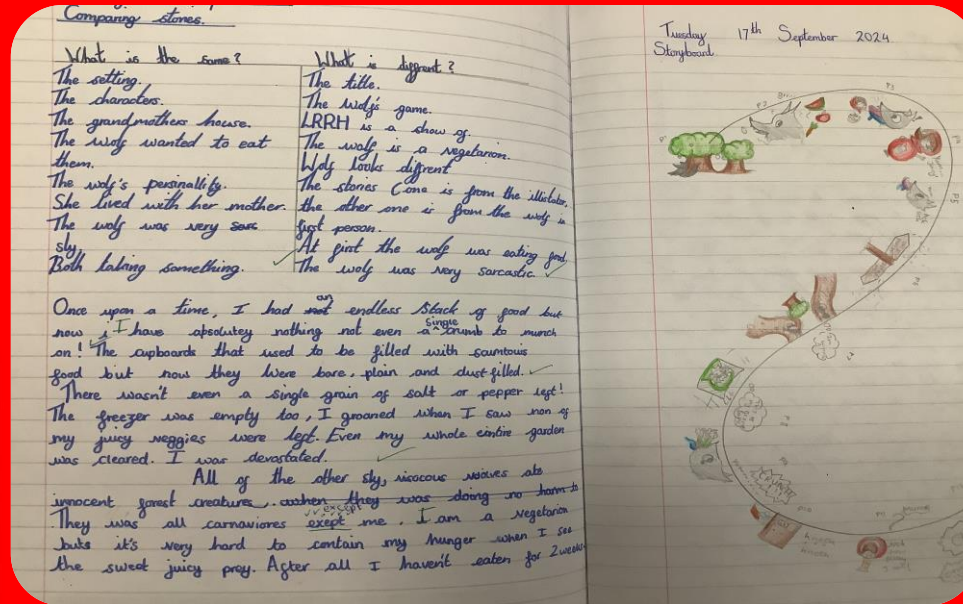 Comparing stories.
What is the same?
The setting.
The characters.
The grandmothers house.
The wolf wanted to eat
them.
The wolf's persinallity.
She lived with her mother.
The wolf was very
sly.
Both taking something.
What is diffrent?
The title.
The wolfs game.
LRRH is a show of.
The wolf is a vegetarion.
Wolf looks diffrent
The stories (one is from the illistator,
the other one is from the wolf in
first person.
At first the wolf was eating food
The wolf was very sarcastic
Once upon a time, I had an endless stack of food but
now I have absolutey nothing not even a single crumb to munch
on! The cupboards that used to be filled with scumtouis
food but now they were bare, plain and dust filled.
There wasn't even a single grain of salt or pepper left!
The freezer was empty too, I groaned when I saw non of
my juicy veggies were left. Even my whole entire garden
was cleared. I was devostated.
All of the other sly, visocous wolves ate
innocent forest creatures. when they was doing no harm to
They was all carnaviores exept me. I am a vegetarion
but it's very hard to contain my hunger when I see
the sweet juicy prey. After all I haven't eaten for 2 weeks
Tuesday 17th September 2024
Storyboard